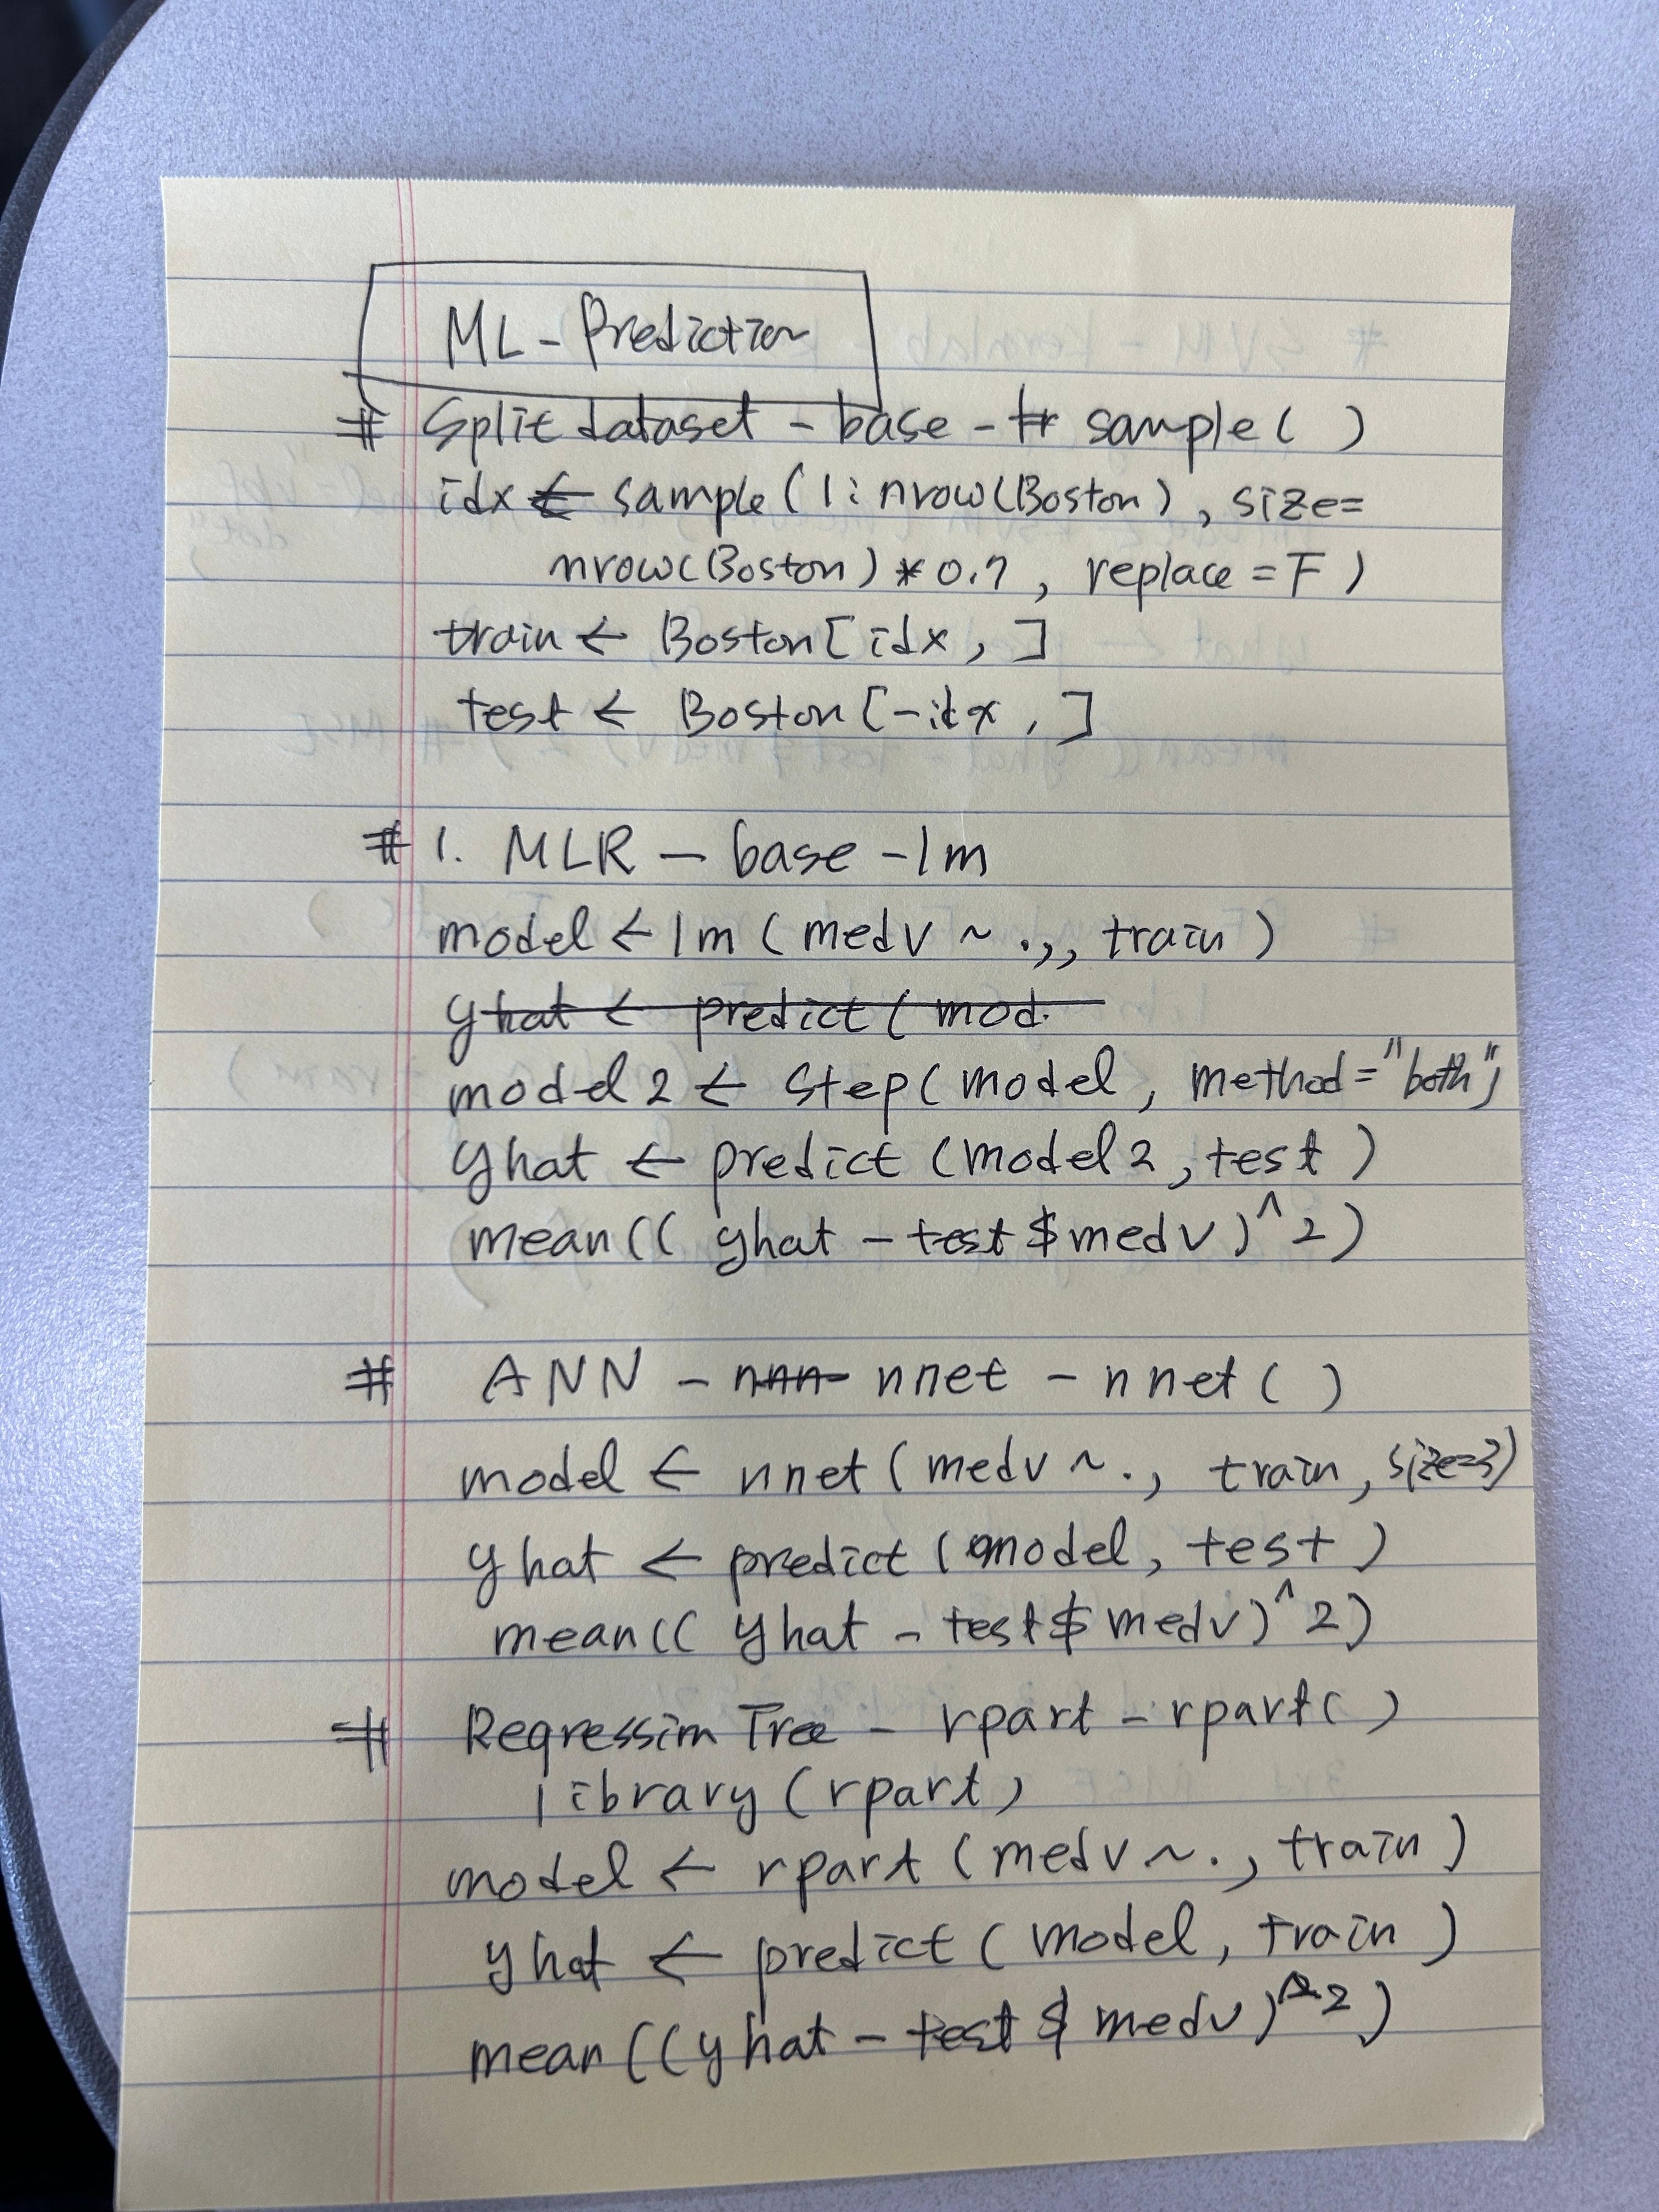 ML - Prediction
# Split dataset - base - sample( )
idx ← sample(1:nrow(Boston), size=
nrow(Boston)*0.7, replace=F)
train ← Boston[idx, ]
test ← Boston[-idx, ]
# 1. MLR - base - lm
model ← lm(medv ~ .,, train)
yhat ← predict(mod.
model2 ← step(model, method="both")
yhat ← predict(model2, test)
mean((yhat - test$medv)^2)
# ANN - nnn nnet - nnet( )
model ← nnet(medv ~ ., train, size=3)
yhat ← predict(model, test)
mean((yhat - test$medv)^2)
# Regression Tree - rpart - rpart( )
library(rpart)
model ← rpart(medv ~ ., train)
yhat ← predict(model, train)
mean((yhat - test$medv)^2)